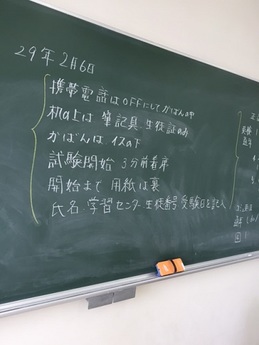 29年2月6日
携帯電話はOFFにしてかばんの中
机の上は筆記具 学生証のみ
かばんはイスの下
試験開始 3分前着席
開始まで 用紙は裏
氏名 学習センター 生徒番号 受験日を記入